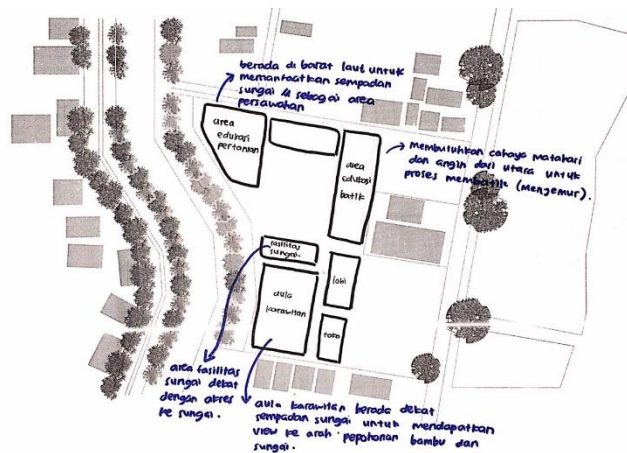 berada di barat laut untuk
memanfaatkan sempadan
sungai sebagai area
persawahan
area
edukasi
pertanian
area
edukasi
batik
Membutuhkan cahaya matahari
dan angin dari utara untuk
proses membatik (menjemur).
fasilitas
sungai.
aula
karawitan
lobi
toko
area fasilitas
sungai dekat
dengan akses
ke sungai.
aula karawitan berada dekat
sempadan sungai untuk mendapatkan
view ke arah pepohonan bambu dan
sungai.